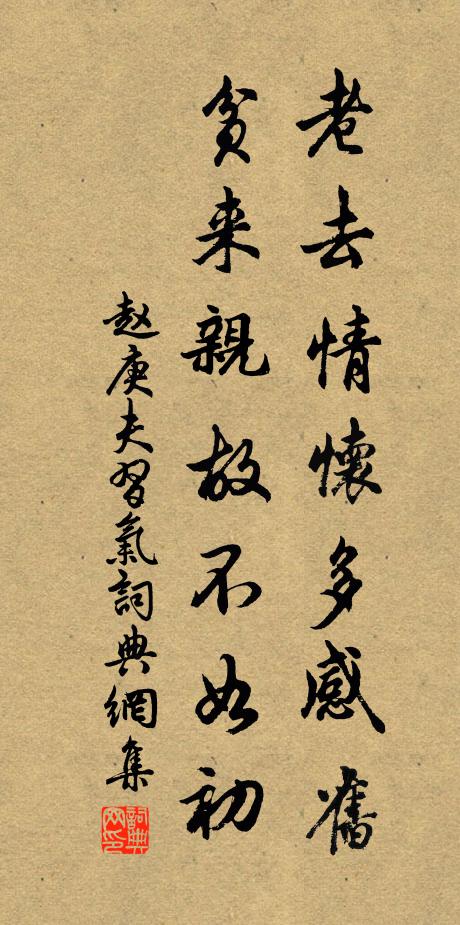 老去情懷多感舊
貧来親故不如初
赵庚夫習氣詞典網集
詞典網印